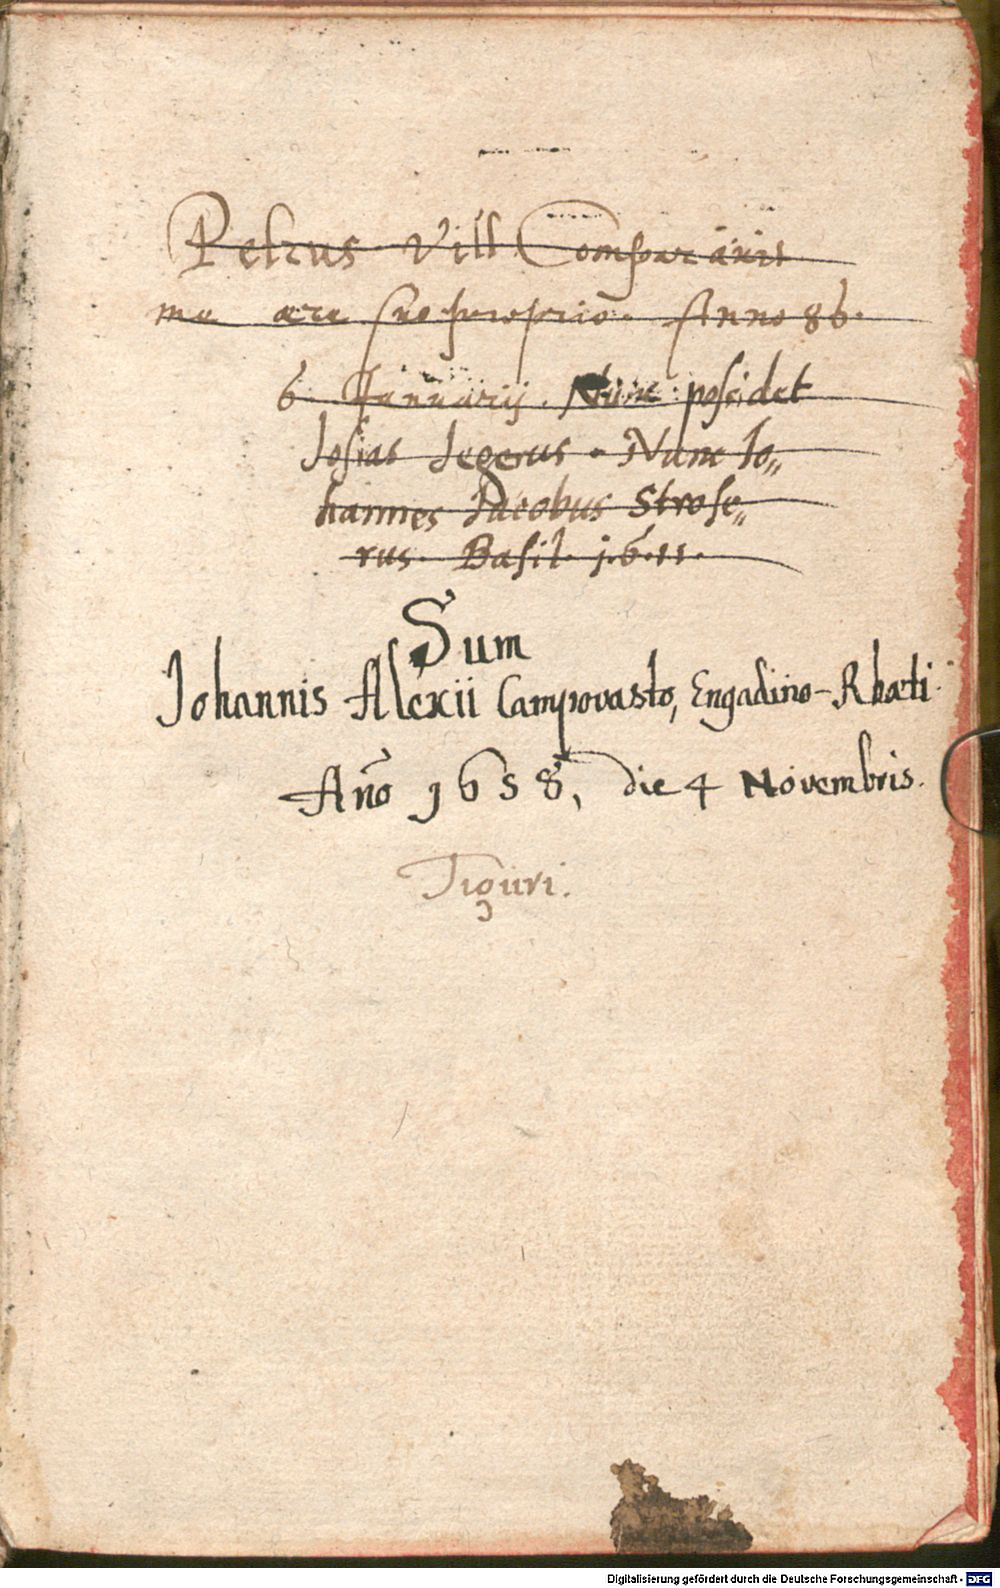 Petrus Vill Comparavit
me aere suo proprio. Anno 86.
6. Januarij. Nunc possidet
Iosias Iegerus. Nunc Io„
hannes Iacobus Strose„
rus. Basil. 1.6.11.
Sum
Johannis Alexii Campovasto, Engadino-Rhæti.
Año 1658, die 4 Novembris.
Tiguri.
Digitalisierung gefördert durch die Deutsche Forschungsgemeinschaft - DFG